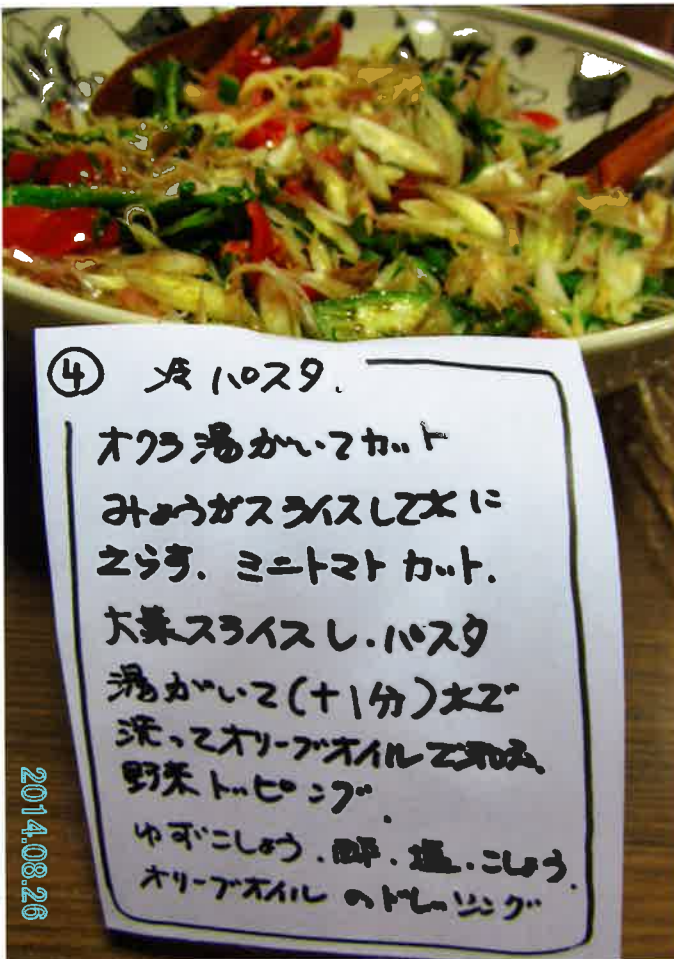 ④ 冷パスタ.
オクラ湯がいてカット
みょうがスライスして水に
さらす. ミニトマトカット.
大葉スライスし.パスタ
湯がいて(+1分)水で
洗ってオリーブオイルで和え、
野菜トッピング.
ゆずこしょう.酢.塩.こしょう.
オリーブオイルのドレッシング
2014.08.26